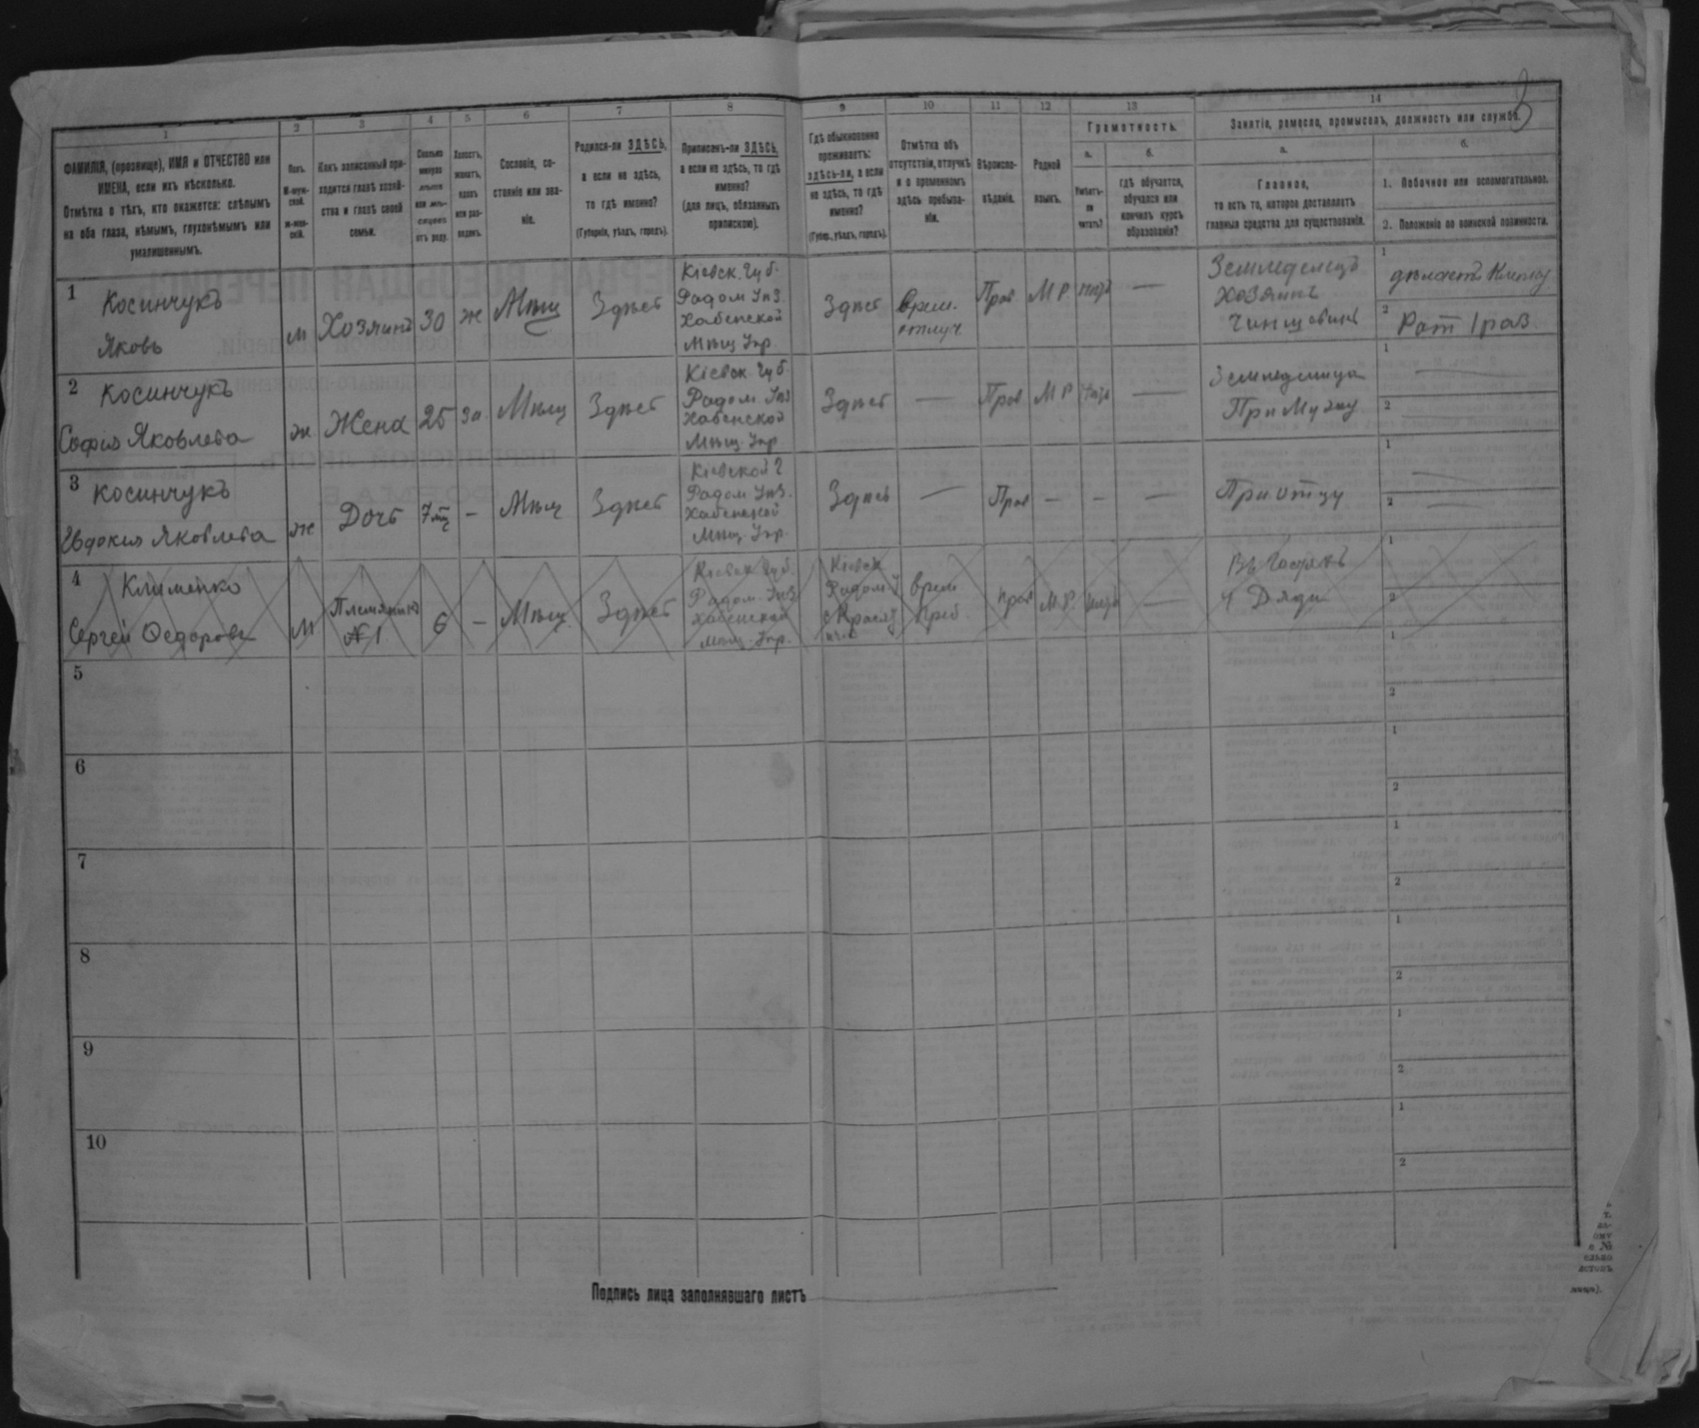 1 2 3 4 5 6 7 8 9 10 11 12 13 14
ФАМИЛІЯ, (прозвище), ИМЯ и ОТЧЕСТВО или
ИМЕНА, если ихъ нѣсколько.
Отмѣтка о тѣхъ, кто окажется: слѣпымъ
на оба глаза, нѣмымъ, глухонѣмымъ или
умалишеннымъ.
Полъ.
М-муж-
ской.
Ж-жен-
скій.
Какъ записанный при-
ходится главѣ хозяй-
ства и главѣ своей
семьи.
Сколько
минуло
лѣтъ
или мѣ-
сяцевъ
отъ роду.
Холостъ,
женатъ,
вдовъ
или раз-
веденъ.
Сословіе, со-
стояніе или зва-
ніе.
Родился-ли ЗДѢСЬ,
а если не здѣсь,
то гдѣ именно?
(Губернія, уѣздъ, городъ).
Приписанъ-ли ЗДѢСЬ,
а если не здѣсь, то гдѣ
именно?
(для лицъ, обязанныхъ
припискою).
Гдѣ обыкновенно
проживаетъ:
здѣсь-ли, а если
не здѣсь, то гдѣ
именно?
(Губер., уѣздъ, городъ).
Отмѣтка объ
отсутствіи, отлучкѣ
и о временномъ
здѣсь пребыва-
ніи.
Вѣроиспо-
вѣданіе.
Родной
языкъ.
Грамотность.
а.
Умѣетъ-
ли
читать?
б.
гдѣ обучается,
обучался или
кончилъ курсъ
образованія?
Занятіе, ремесло, промыселъ, должность или служба.
а.
Главное,
то есть то, которое доставляетъ
главныя средства для существованія.
б.
1. Побочное или вспомогательное.
2. Положеніе по воинской повинности.
1 Косинчукъ
Яковъ
м
Хозяинъ
30
ж
Мѣщ
Здѣсь
Кіевск. Губ.
Радом Уѣз.
Хабенской
Мѣщ Упр.
Здѣсь
Врем.
отлуч
Прав
МР
Земледелецъ
Хозяинъ
1
2 Рат 1 раз
2 Косинчукъ
Софія Яковлева
ж
Жена
25
за
Мѣщ
Здѣсь
Кіевск. Губ.
Радом Уѣз
Хабенской
Мѣщ. Упр
Здѣсь
—
Прав
МР
—
При Мужу
1 —
2 —
3 Косинчукъ
Евдокия Яковлева
ж
Дочь
7 мѣ
—
Мѣщ
Здѣсь
Кіевской Г
Радом Уѣз.
Хабенской
Мѣщ. Упр.
Здѣсь
—
Прав
—
—
—
При отцу
1 —
2 —
4 Клименко
Сергей Федоровъ
М
Племянник
№ 1
6
—
Мѣщ.
Здѣсь
Кіевск. Губ.
Радом. Уѣз
Хабенской
Мѣщ. Упр.
Кіевск
Радом У
врем
преб
прав
М.Р.
—
Въ Гостяхъ
У Дяди
1
2
5
1
2
6
1
2
7
1
2
8
1
2
9
1
2
10
1
2
Подпись лица заполнявшаго листъ